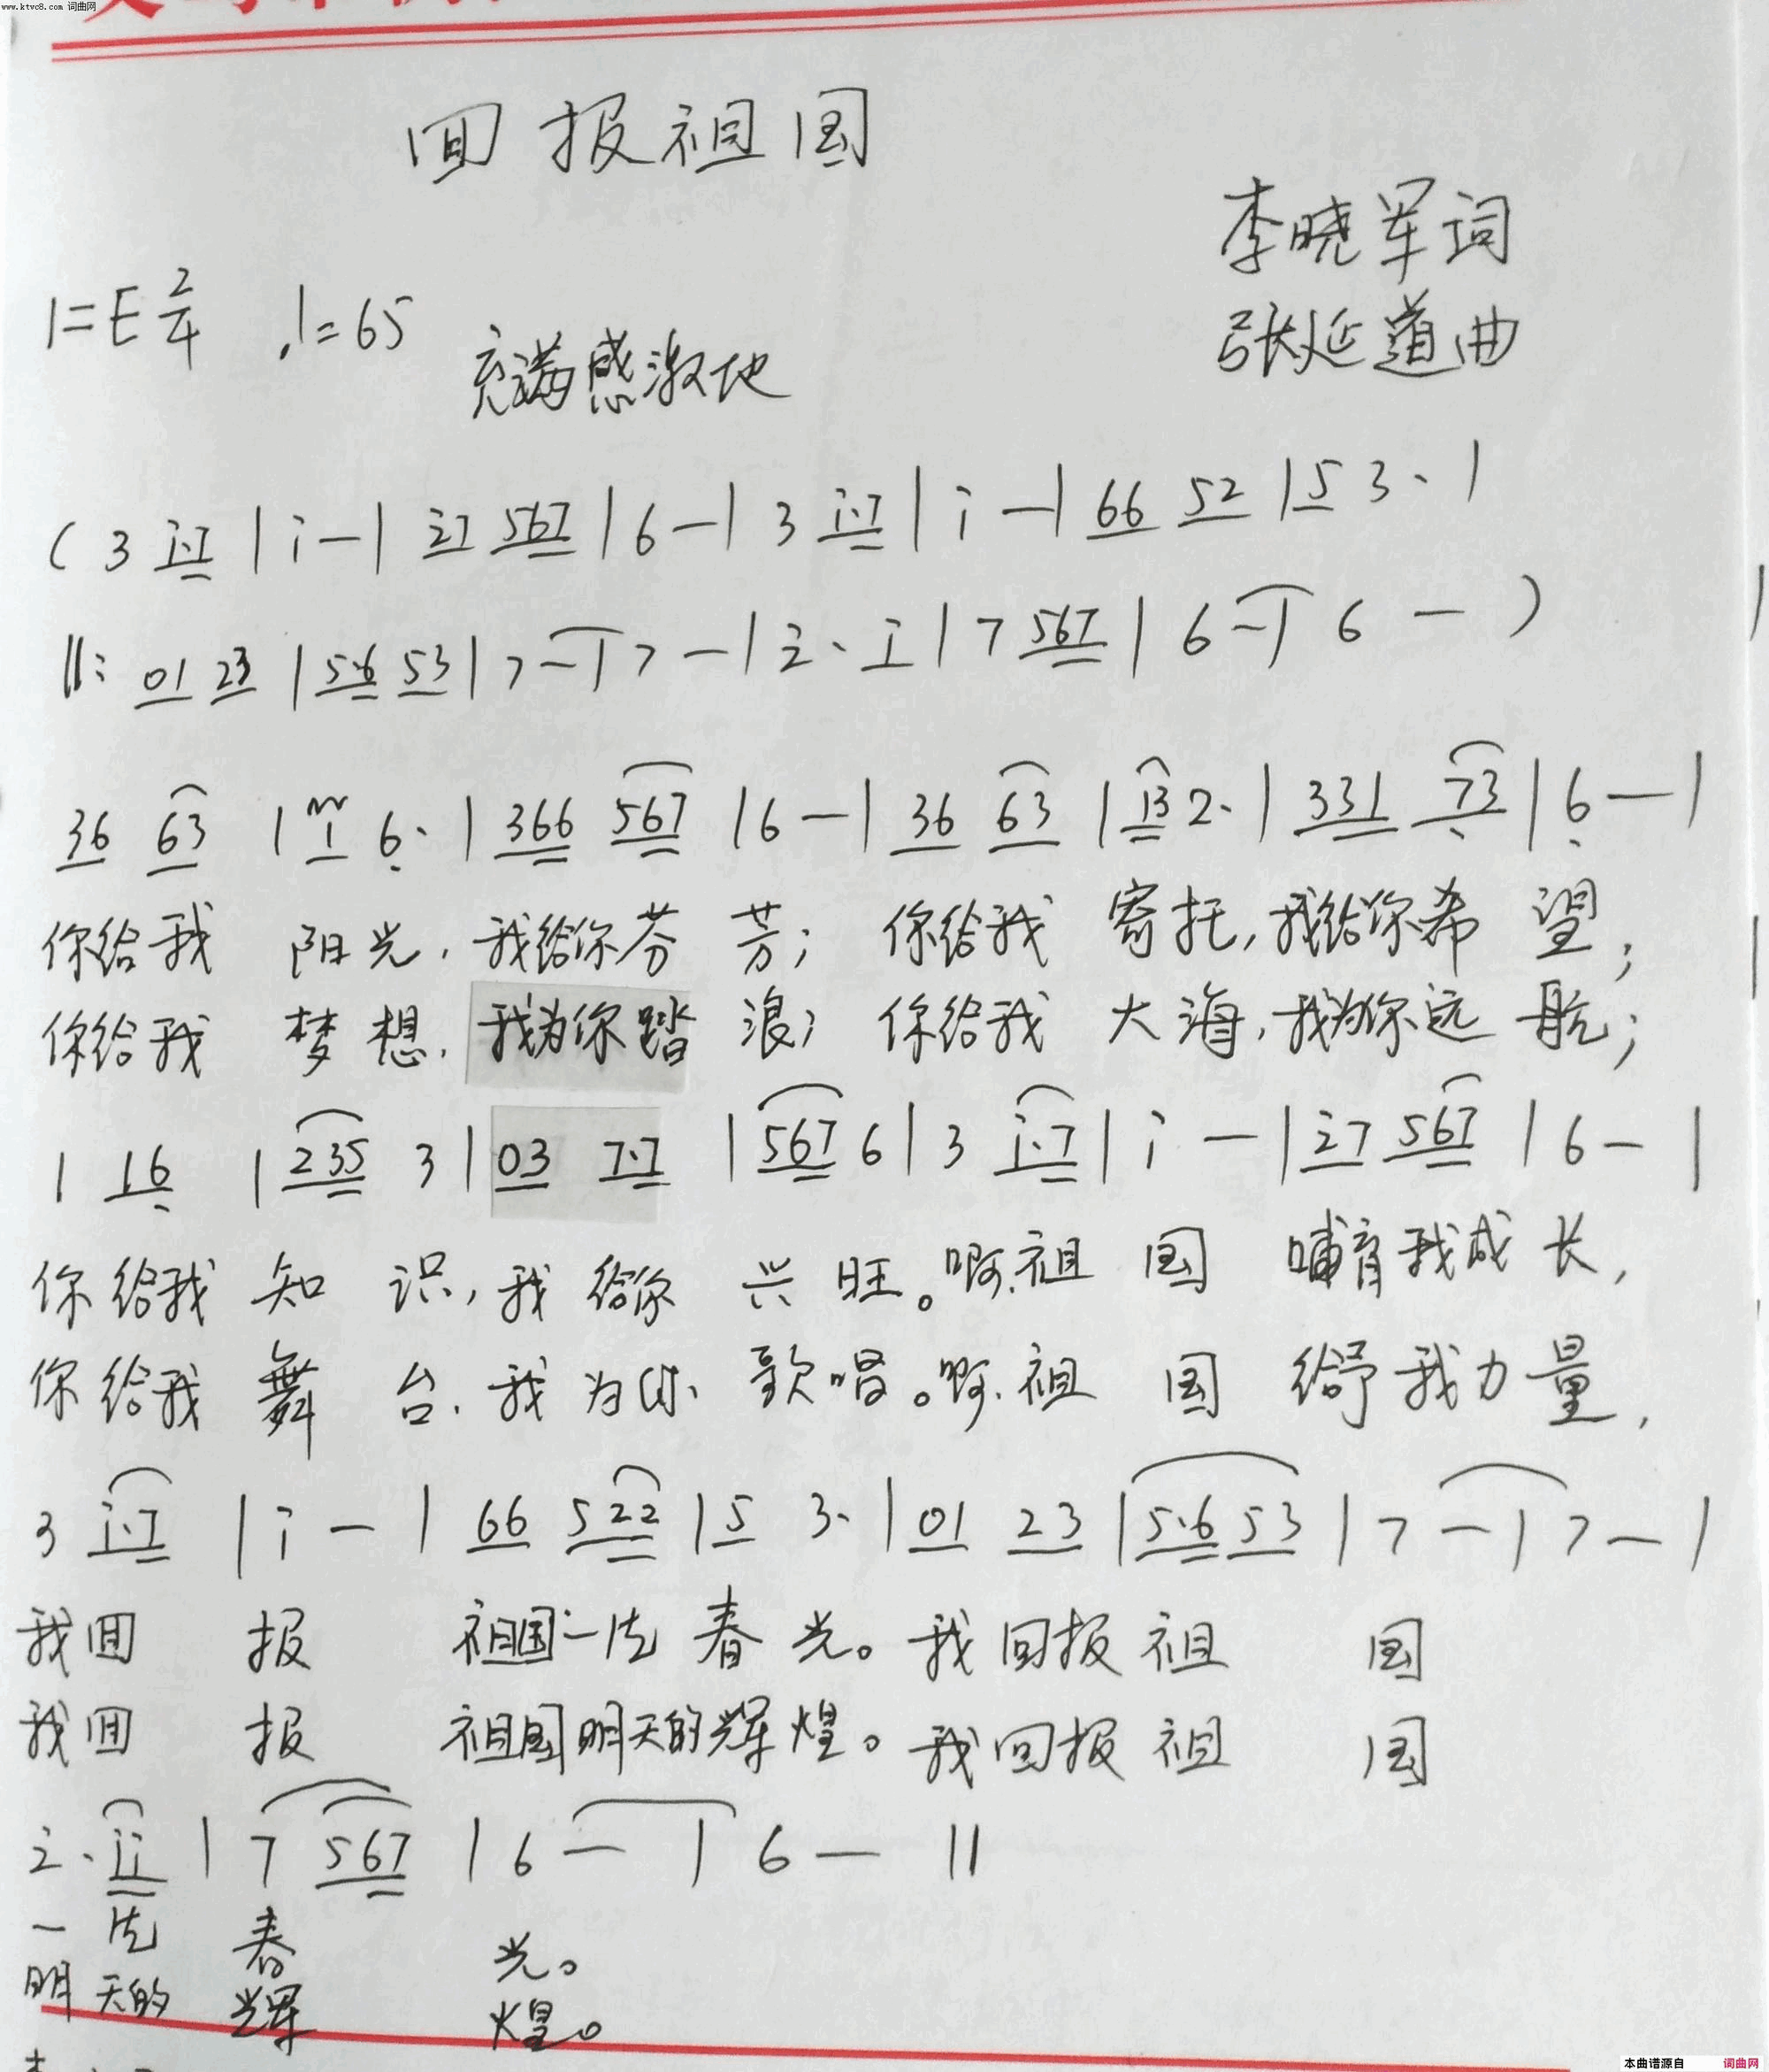 www.ktvc8.com 词曲网
回报祖国
李晓军词
1=E 2/4 ♩=65
张延道曲
充满感激地
( 3 i·7 | i - | 2̇7 567 | 6 - | 3 i·7 | i - | 66 52 | 5 3· |
‖: 01 23 | 5·6 53 | 7 - | 7 - | 2̇· i | 7 567 | 6 - | 6 - )
36 63 | 1 6̣· | 366 567 | 6 - | 36 63 | 13 2· | 331 7̣3 | 6̣ - |
你给我 阳光,我给你芬 芳; 你给我 寄托,我给你希 望;
你给我 梦想,我为你踏 浪; 你给我 大海,我为你远 航;
1 16̣ | 235 3 | 03 7·7 | 567 6 | 3 i·7 | i - | 2̇7 567 | 6 - |
你给我 知 识,我 给你 兴 旺。啊,祖 国 哺育我成 长,
你给我 舞 台,我 为你 歌唱。啊,祖 国 给予我力 量,
3 i·7 | i - | 66 522 | 5 3· | 01 23 | 5·6 53 | 7 - | 7 - |
我回 报 祖国一片 春 光。我回报 祖 国
我回 报 祖国明天的辉 煌。我回报 祖 国
2̇· ii | 7 567 | 6 - | 6 - ‖
一 片 春 光。
明 天的 辉 煌。
本曲谱源自 词曲网